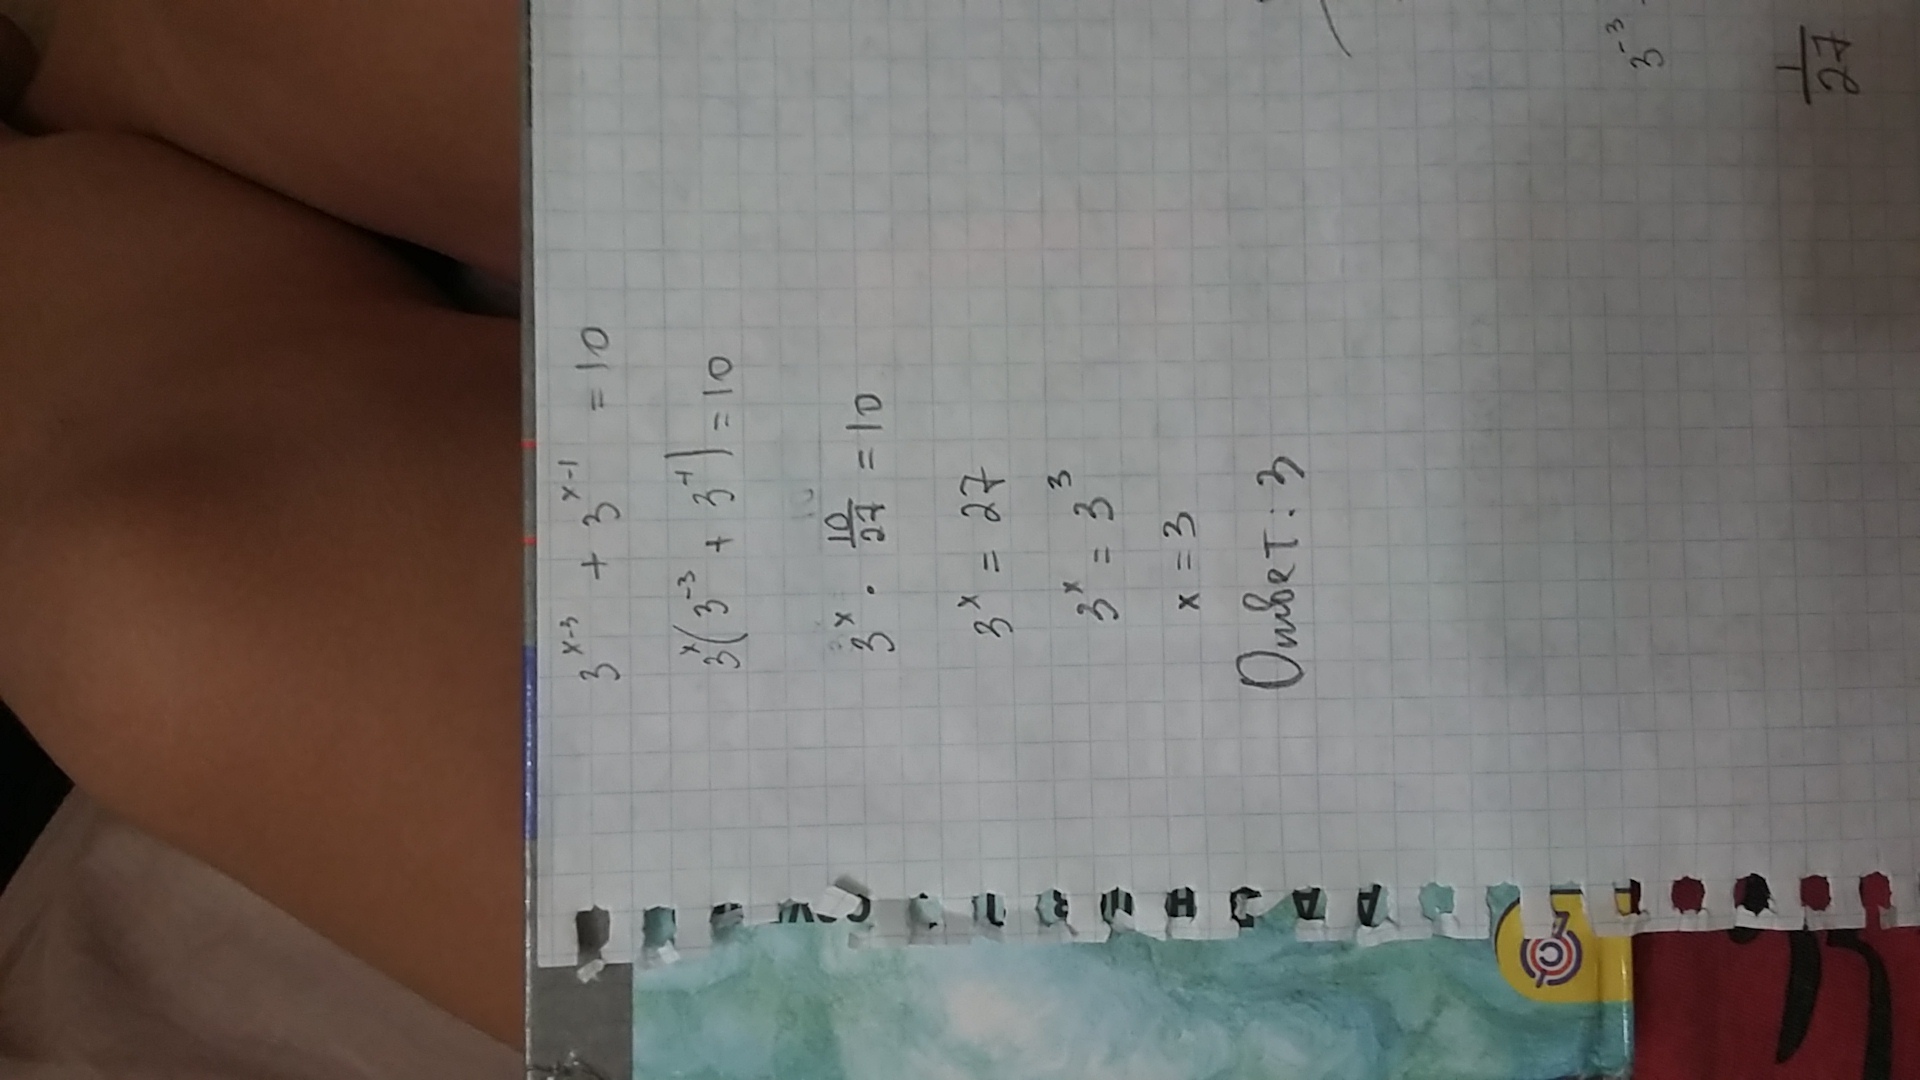 3^{x-3} + 3^{x-1} = 10
3^x(3^{-3} + 3^{-1}) = 10
3^x · \frac{10}{27} = 10
3^x = 27
3^x = 3^3
x = 3
Ответ: 3
3^{-3}
\frac{1}{27}